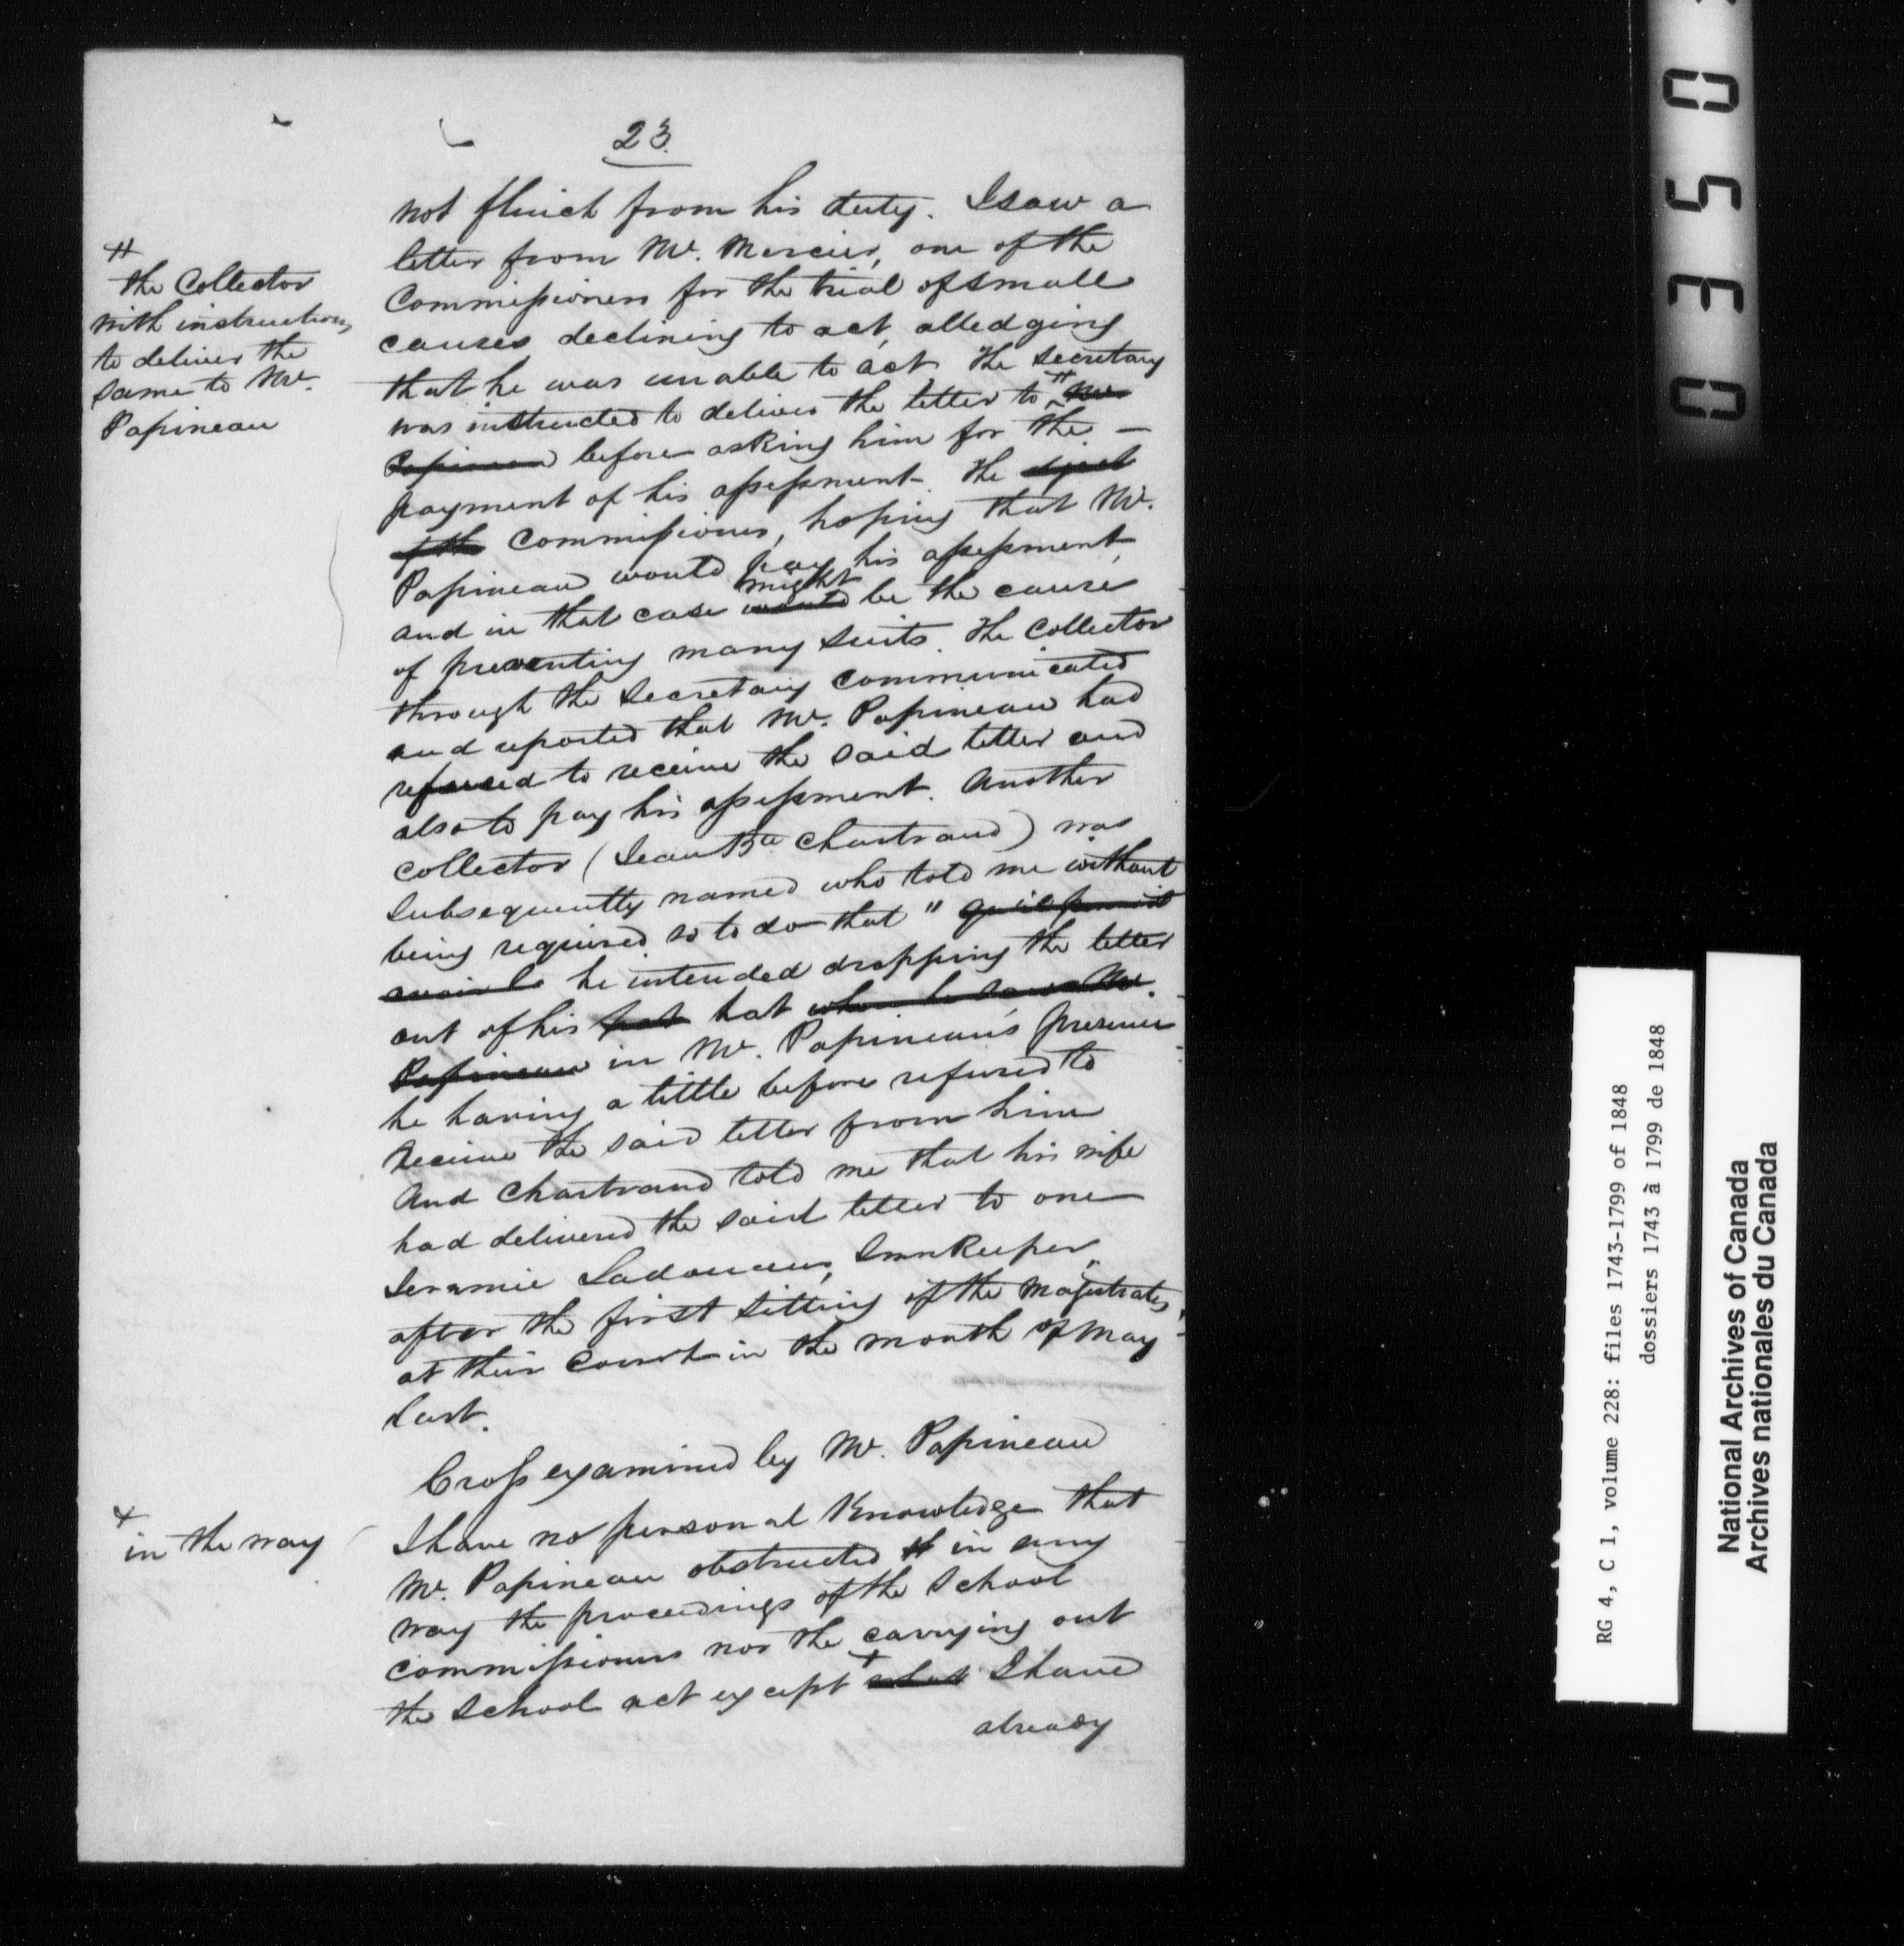 23.
not flinch from his duty. I saw a
letter from Mr. Mercier, one of the
Commissioners for the trial of small
causes declining to act, alledging
that he was unable to act. The Secretary
was instructed to deliver the letter to # Mr.
Papineau before asking him for the —
payment of his assessment. The
of the Commissioners, hoping that Mr.
Papineau would pay his assessment,
might
and in that case would be the cause
of preventing many suits. The Collector
through the Secretary communicated
and reported that Mr. Papineau had
refused to receive the said letter and
also to pay his assessment. Another
Collector (Jean Bte Chartrand) was
subsequently named who told me without
being required so to do that "
he intended dropping the letter
out of his hat hat when he saw Mr.
Papineau in Mr. Papineau's presence
he having a little before refused to
receive the said letter from him
And Chartrand told me that his wife
had delivered the said letter to one
Jeramie Ladouceur, Innkeeper,
after the first sitting of the Magistrates,
at their Court in the month of May
last.
Cross examined by Mr. Papineau
I have no personal Knowledge that
Mr. Papineau obstructed in any
way the proceedings of the School
Commissioners nor the carrying out
the School act except + what I have
already
#
the Collector
with instructions
to deliver the
same to Mr.
Papineau
+
in the way
0350
RG 4, C 1, volume 228: files 1743-1799 of 1848
dossiers 1743 à 1799 de 1848
National Archives of Canada
Archives nationales du Canada